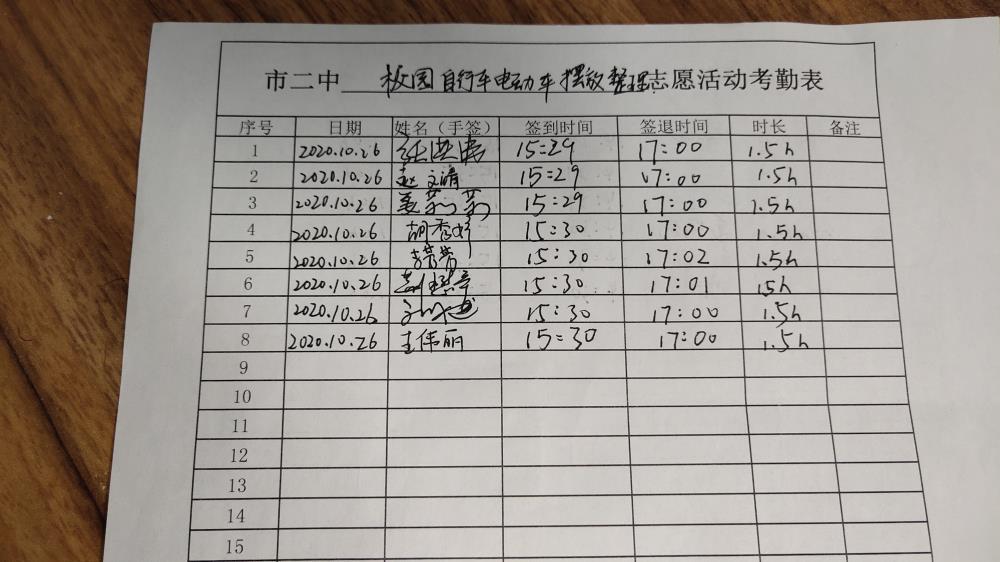 市二中 校园自行车电动车摆放整理志愿活动考勤表
序号 日期 姓名（手签） 签到时间 签退时间 时长 备注
1 2020.10.26 15:29 17:00 1.5h
2 2020.10.26 赵文清 15:29 17:00 1.5h
3 2020.10.26 姜莉莉 15:29 17:00 1.5h
4 2020.10.26 15:30 17:00 1.5h
5 2020.10.26 15:30 17:02 1.5h
6 2020.10.26 15:30 17:01 15h
7 2020.10.26 15:30 17:00 1.5h
8 2020.10.26 王伟丽 15:30 17:00 1.5h
9
10
11
12
13
14
15